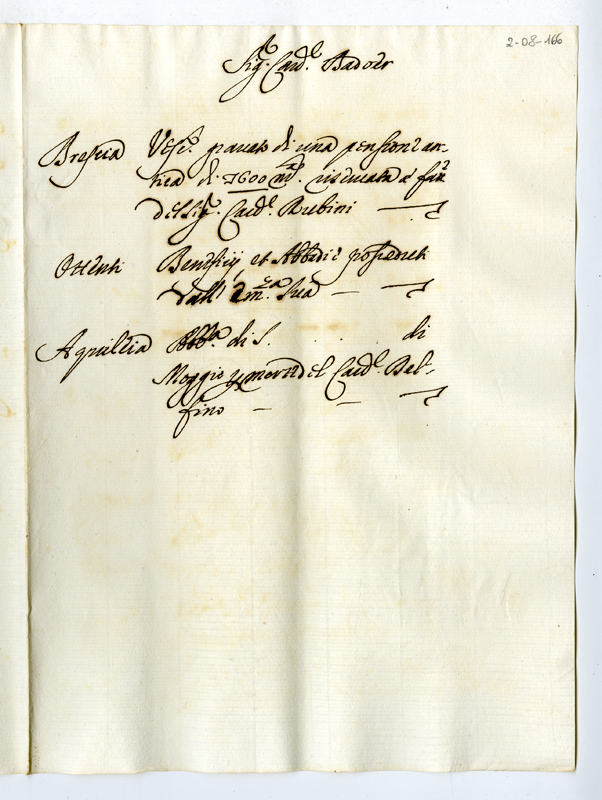 2-08-166
Sig.r Card.l Badoer
Brescia Vesc.o gravato di una pensione an-
tica di 1600 m.ta riservata a fav.e
del Sig.r Card.l Rubini
Ottenti Beneficij et Abbadie possedute
dall' Em.za Sua
Aquileia Abb.a di S. . . . . di
Moggio p morte del Card.l Del-
fino